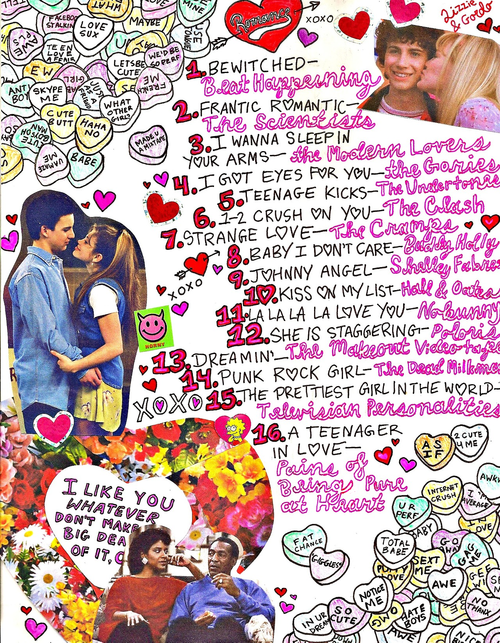 Romance
XOXO
Lizzie
& Gordo
FACEBOOK
STALKIN
LOVE
SUX
MAYBE
MINE
TEEN
LOVE
AFFAIR
LETSBE
CUTE
WE'D BE
PERF
EW
ANT
BOY
SKYPE
ME
WHAT
OTHER
GIRL?
CUTE
BUTT
HAHA
NO
MADE U
A MIXTAPE
BABE
1. BEWITCHED-
Beat Happening
2. FRANTIC ROMANTIC-
The Scientists
3. I WANNA SLEEP IN
YOUR ARMS- the Modern Lovers
4. I GOT EYES FOR YOU- the Gories
5. TEENAGE KICKS- The Undertones
6. 1-2 CRUSH ON YOU- The Clash
7. STRANGE LOVE- The Cramps
8. BABY I DON'T CARE- Buddy Holly
9. JOHNNY ANGEL- Shelley Fabres
XOXO
10. KISS ON MY LIST- Hall & Oates
11. LA LA LA LA LOVE YOU- Nobunny
12. SHE IS STAGGERING- Polaris
HORNY
13. DREAMIN'- The Makeout Videotape
14. PUNK ROCK GIRL- The Dead Milkmen
XOXO
15. THE PRETTIEST GIRL IN THE WORLD-
Television Personalities
16. A TEENAGER
IN LOVE-
Pains of
Being Pure
at Heart
I LIKE YOU
WHATEVER
DON'T MAKE A
BIG DEA
OF IT,
AS
IF
2 CUTE
4 ME
INTERNET
CRUSH
I
AVERAGE
AWK
U R
PERF
FAT
CHANCE
GIGGLES
TOTAL
BABE
GO
WAY
GAG
ME
SEXT
ME
LOVE
AWE
NOTICE
ME
HATE
BOYS
SO
CUTE
IN UR
NO
THANX